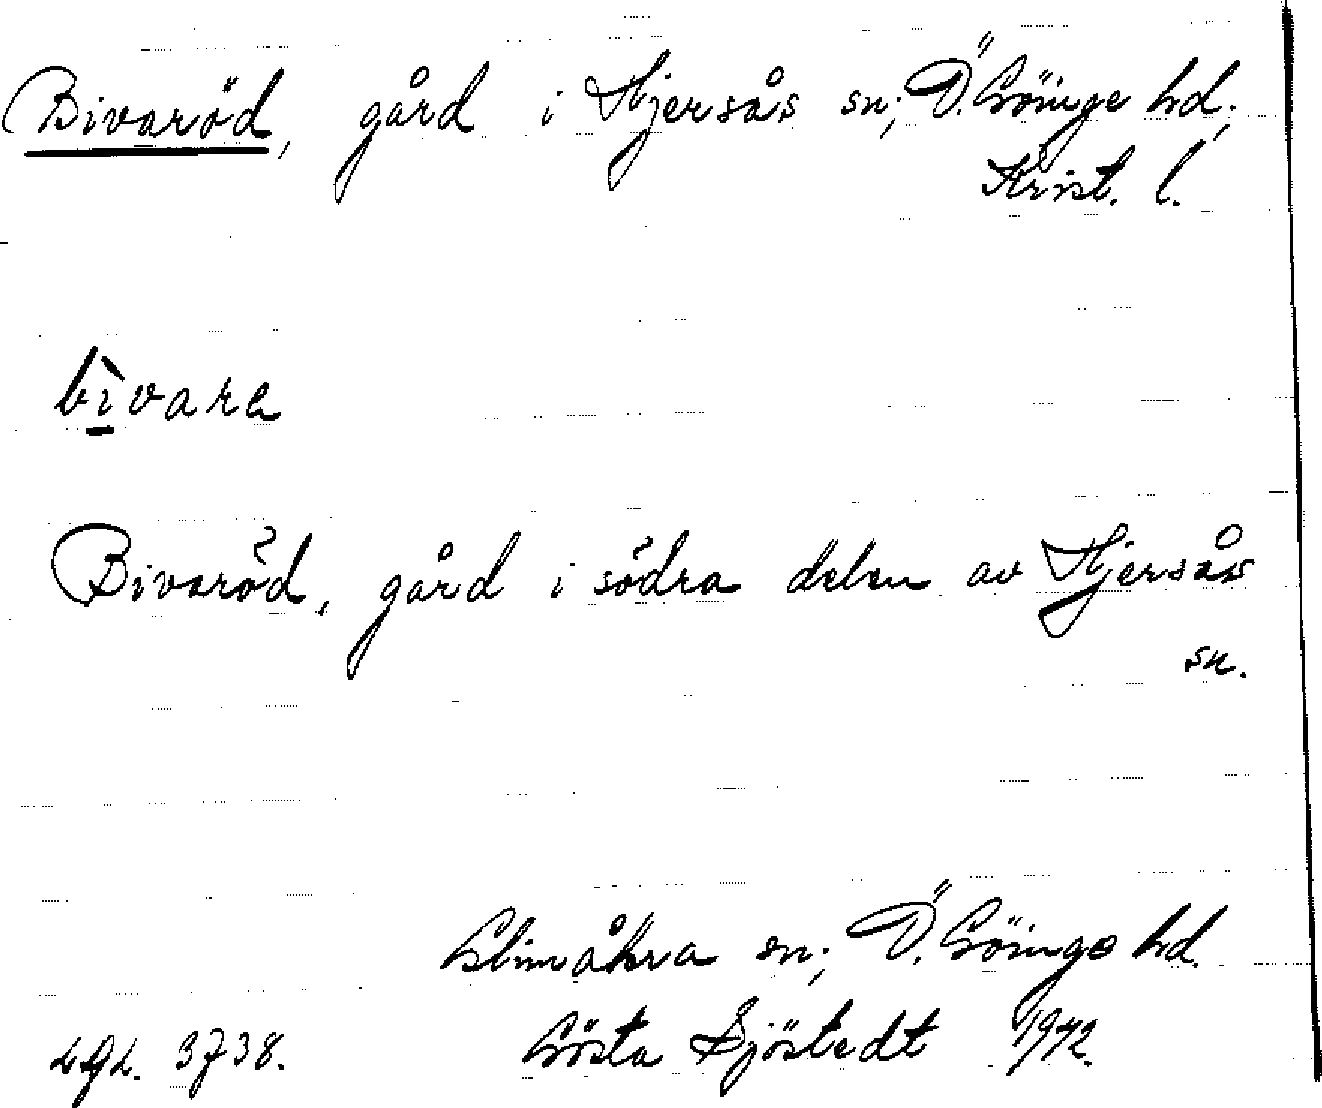 Bivaröd, gård i Hjersås sn; Ö. Göinge hd;
Krist. l.
bìvara
Bivaröd, gård i södra delen av Hjersås
sn.
Glimåkra sn; Ö. Göinge hd.
3738. Gösta Sjöstedt 1942.